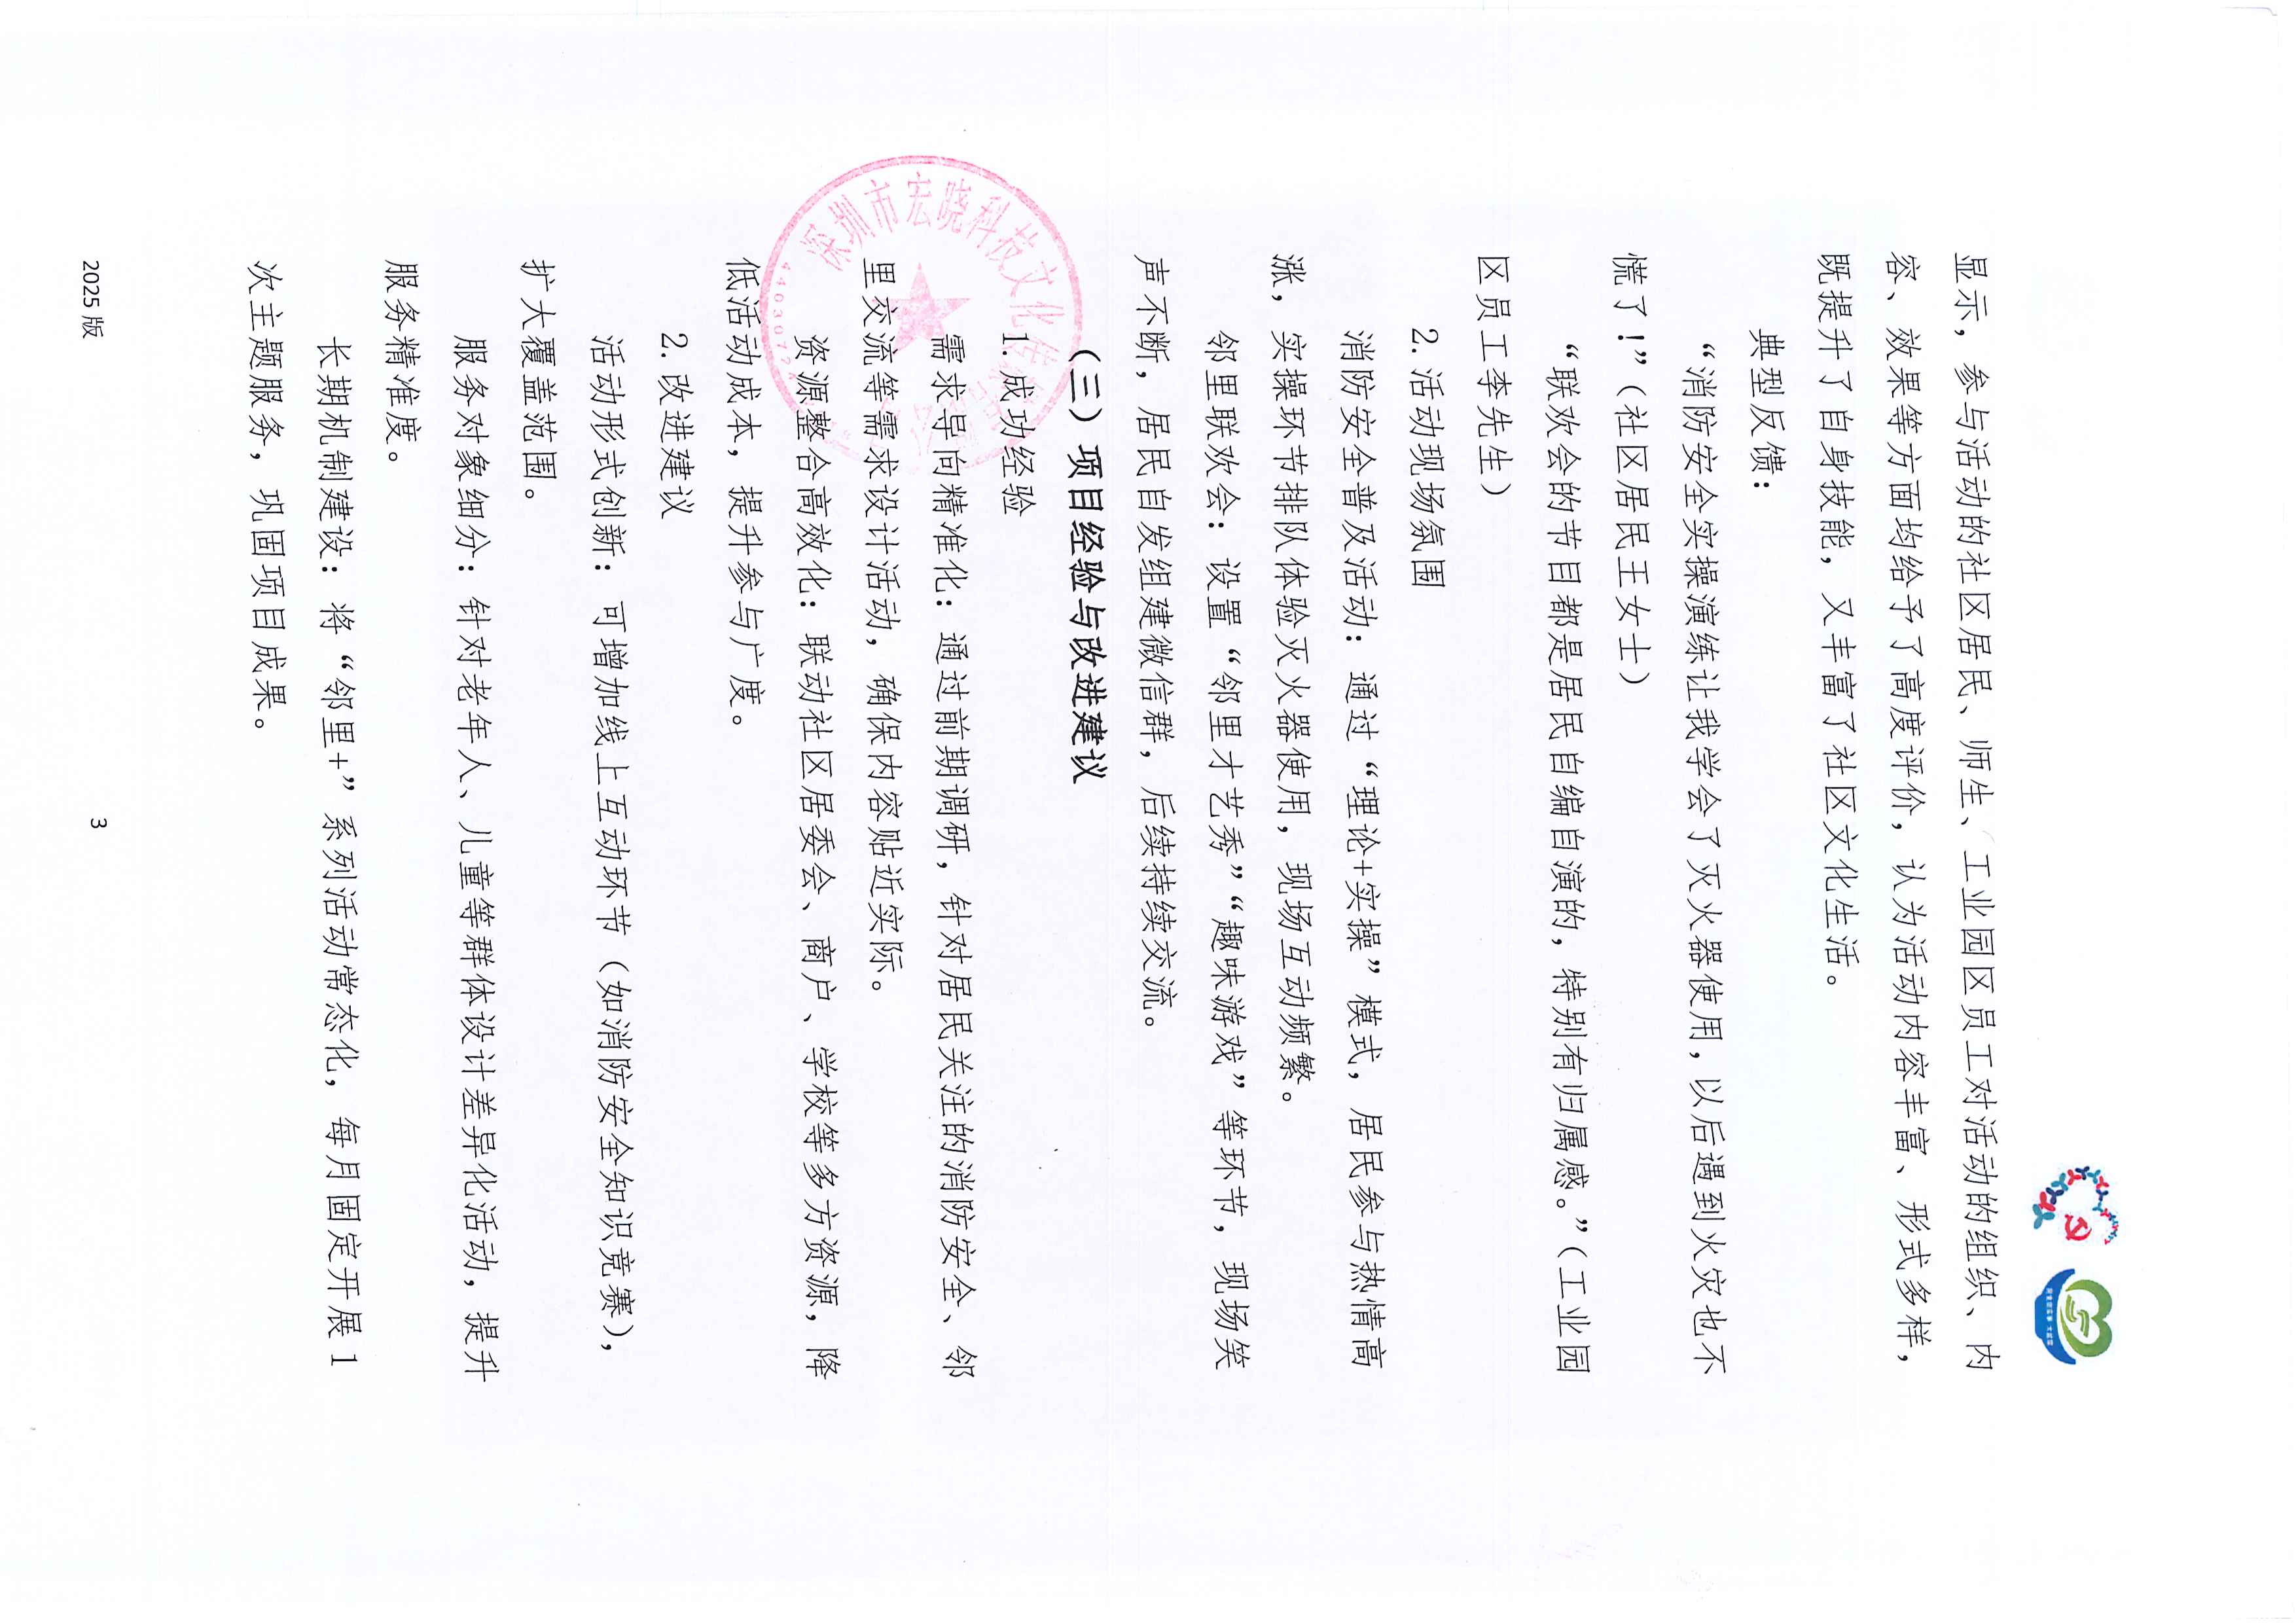 显示，参与活动的社区居民、师生、工业园区员工对活动的组织、内
容、效果等方面均给予了高度评价，认为活动内容丰富、形式多样，
既提升了自身技能，又丰富了社区文化生活。
典型反馈：
“消防安全实操演练让我学会了灭火器使用，以后遇到火灾也不
慌了！”（社区居民王女士）
“联欢会的节目都是居民自编自演的，特别有归属感。”（工业园
区员工李先生）
2.活动现场氛围
消防安全普及活动：通过“理论+实操”模式，居民参与热情高
涨，实操环节排队体验灭火器使用，现场互动频繁。
邻里联欢会：设置“邻里才艺秀”“趣味游戏”等环节，现场笑
声不断，居民自发组建微信群，后续持续交流。
（三）项目经验与改进建议
1.成功经验
需求导向精准化：通过前期调研，针对居民关注的消防安全、邻
里交流等需求设计活动，确保内容贴近实际。
资源整合高效化：联动社区居委会、商户、学校等多方资源，降
低活动成本，提升参与广度。
2.改进建议
活动形式创新：可增加线上互动环节（如消防安全知识竞赛），
扩大覆盖范围。
服务对象细分：针对老年人、儿童等群体设计差异化活动，提升
服务精准度。
长期机制建设：将“邻里+”系列活动常态化，每月固定开展 1
次主题服务，巩固项目成果。
深圳市宏晓科技文化传
2025版
3